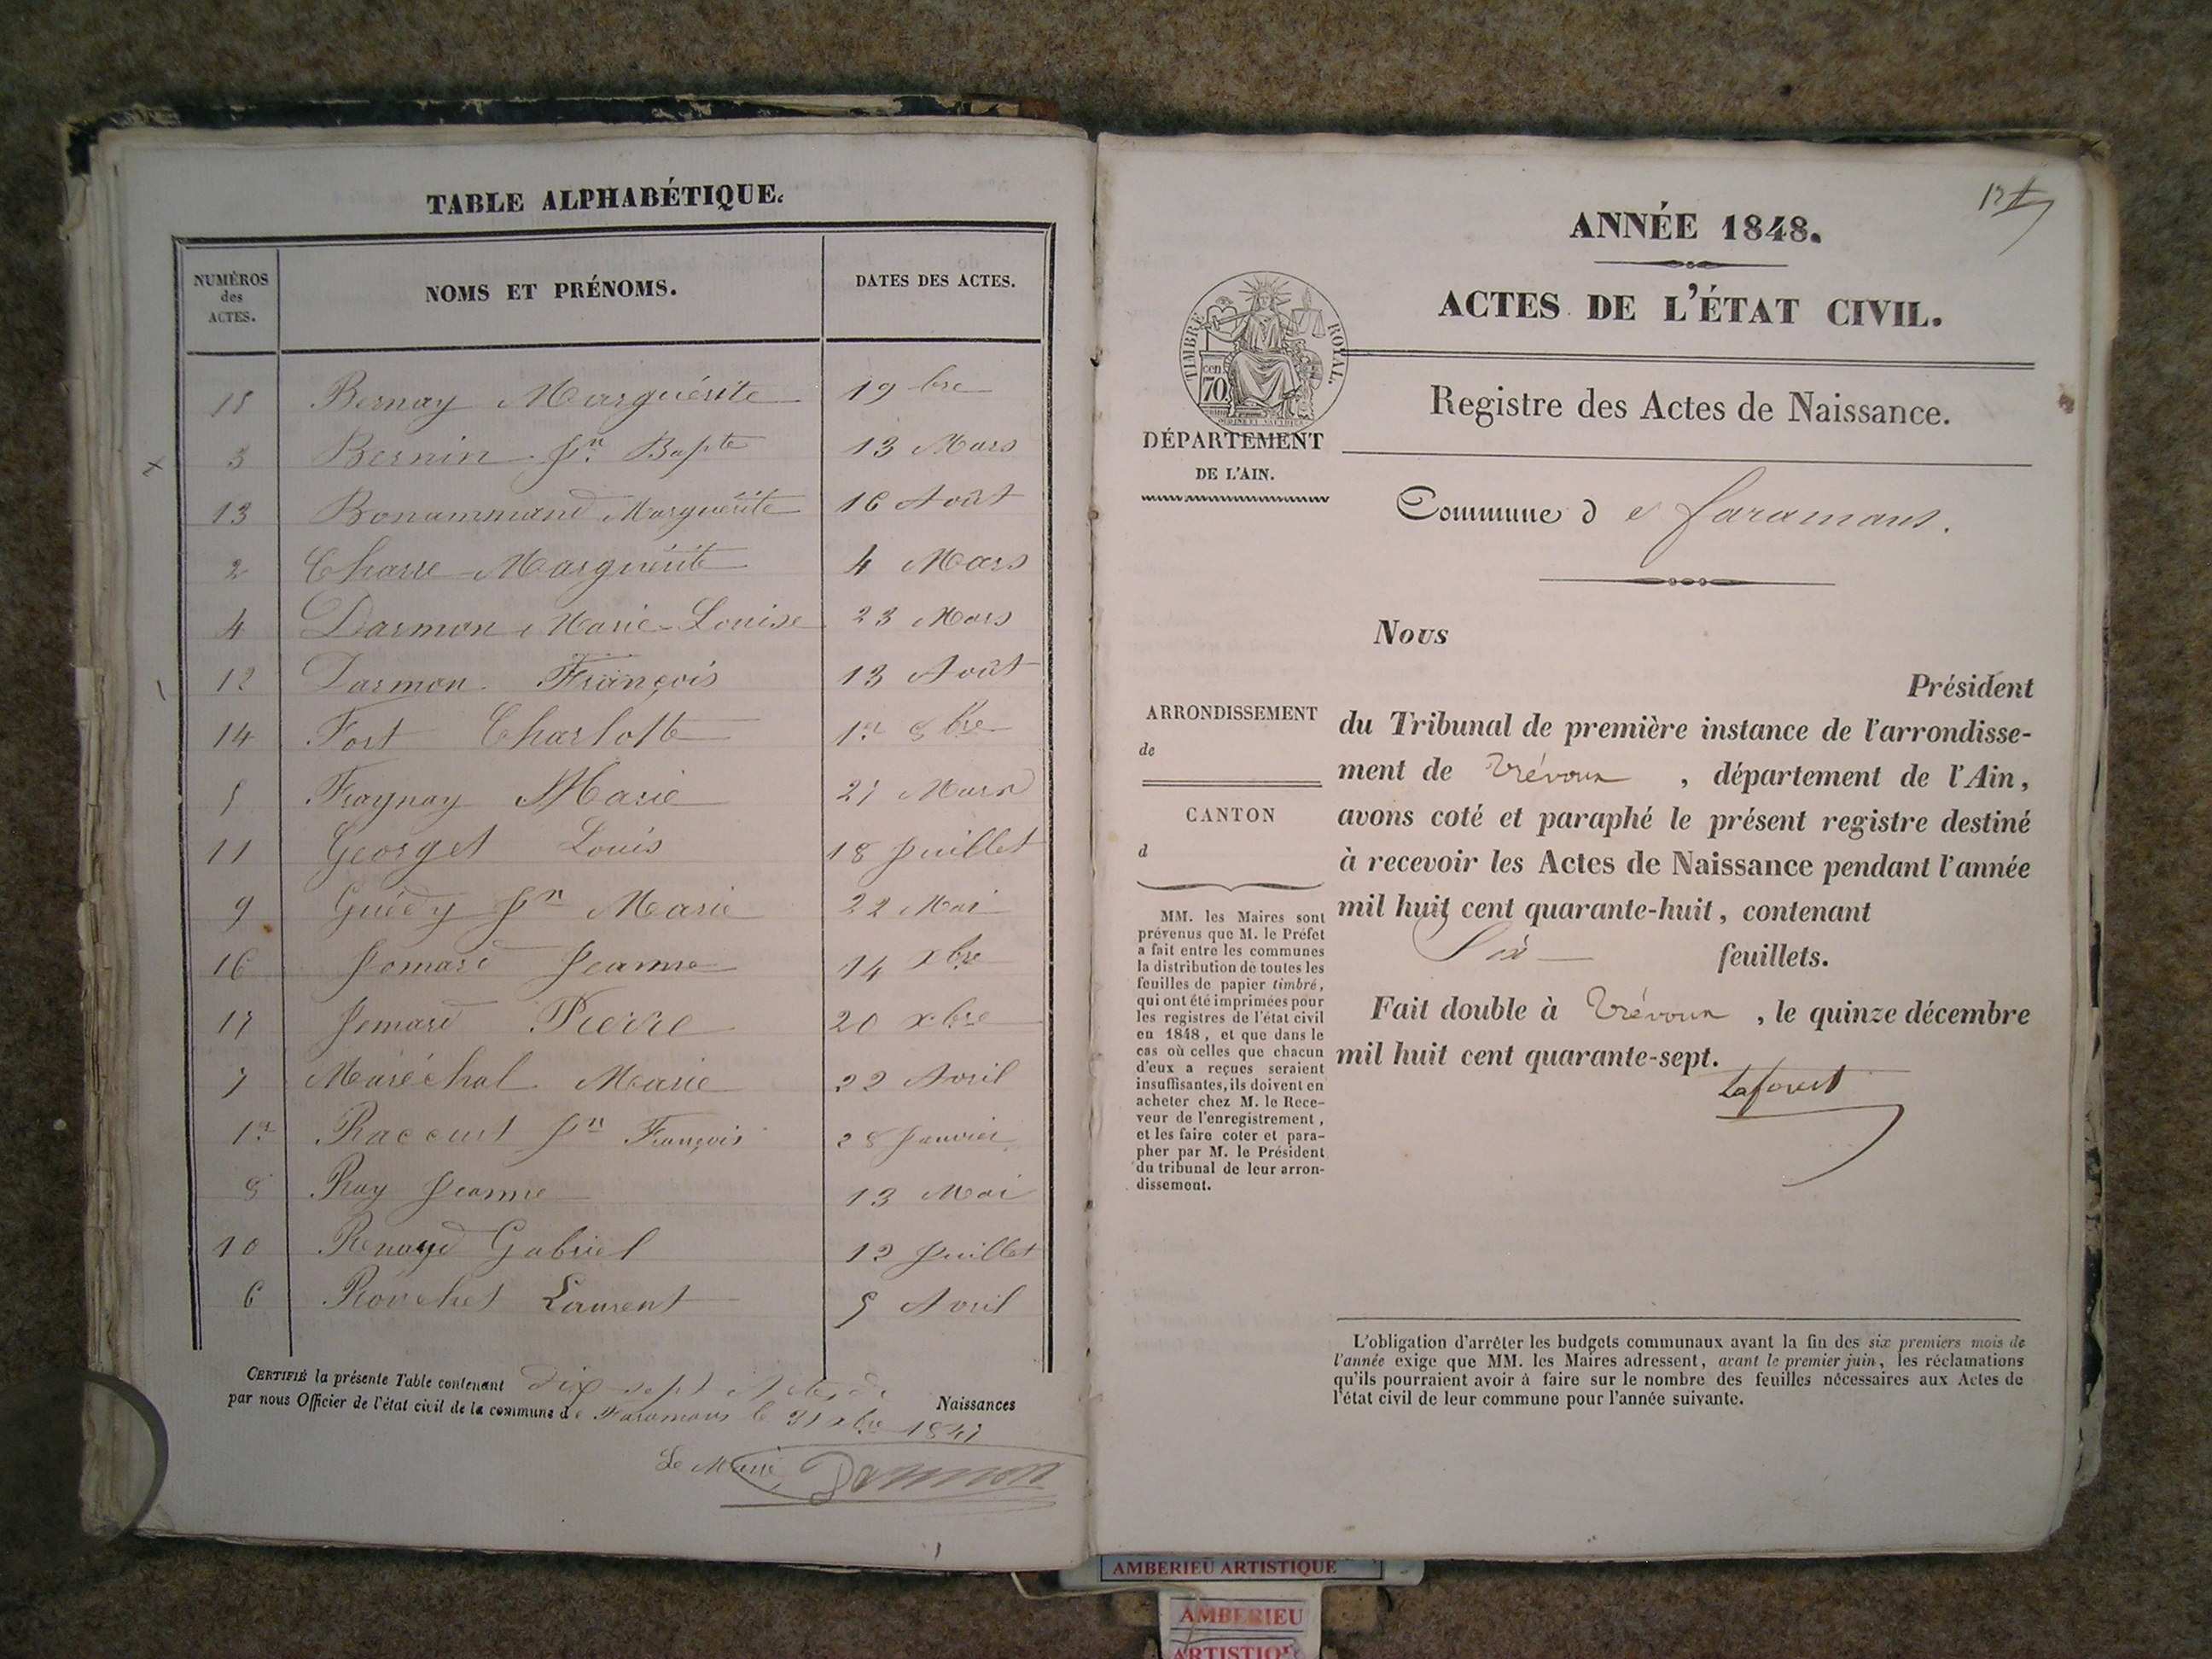 TABLE ALPHABÉTIQUE.
NUMÉROS des ACTES.
NOMS ET PRÉNOMS.
DATES DES ACTES.
15 Bernay Marguérite 19 bre
3 Bernin Jn Bapte 13 Mars
13 Bonammand Marguérite 16 Août
2 Charre Marguérite 4 Mars
4 Darmon Marie-Louise 23 Mars
12 Darmon François 13 Août
14 Fort Charlotte 1er 8bre
5 Fraynay Marie 27 Mars
11 Georget Louis 18 Juillet
9 Guédy Jn Marie 22 Mai
16 Jomard Jeanne 14 xbre
17 Jomard Pierre 20 xbre
7 Maréchal Marie 22 Avril
1er Raccurt Jn François 28 Janvier
8 Ray Jeanne 13 Mai
10 Renaud Gabriel 12 Juillet
6 Rovchet Laurent 5 Avril
CERTIFIÉ la présente Table contenant dix-sept Actes de Naissances
par nous Officier de l'état civil de la commune de Faramans le 31 xbre 1847
Le Maire Darmon
ANNÉE 1848.
ACTES DE L'ÉTAT CIVIL.
TIMBRE ROYAL.
cen 70
Registre des Actes de Naissance.
DÉPARTEMENT
DE L'AIN.
Commune de Faramans.
Nous
Président
du Tribunal de première instance de l'arrondisse-
ment de Trévoux, département de l'Ain,
avons coté et paraphé le présent registre destiné
à recevoir les Actes de Naissance pendant l'année
mil huit cent quarante-huit, contenant
Six feuillets.
Fait double à Trévoux, le quinze décembre
mil huit cent quarante-sept.
Laforest
ARRONDISSEMENT
de
CANTON
d
MM. les Maires sont
prévenus que M. le Préfet
a fait entre les communes
la distribution de toutes les
feuilles de papier timbré,
qui ont été imprimées pour
les registres de l'état civil
en 1848, et que dans le
cas où celles que chacun
d'eux a reçues seraient
insuffisantes, ils doivent en
acheter chez M. le Rece-
veur de l'enregistrement,
et les faire coter et para-
pher par M. le Président
du tribunal de leur arron-
dissement.
L'obligation d'arrêter les budgets communaux avant la fin des six premiers mois de
l'année exige que MM. les Maires adressent, avant le premier juin, les réclamations
qu'ils pourraient avoir à faire sur le nombre des feuilles nécessaires aux Actes de
l'état civil de leur commune pour l'année suivante.
AMBERIEU ARTISTIQUE
AMBERIEU
ARTISTIQUE